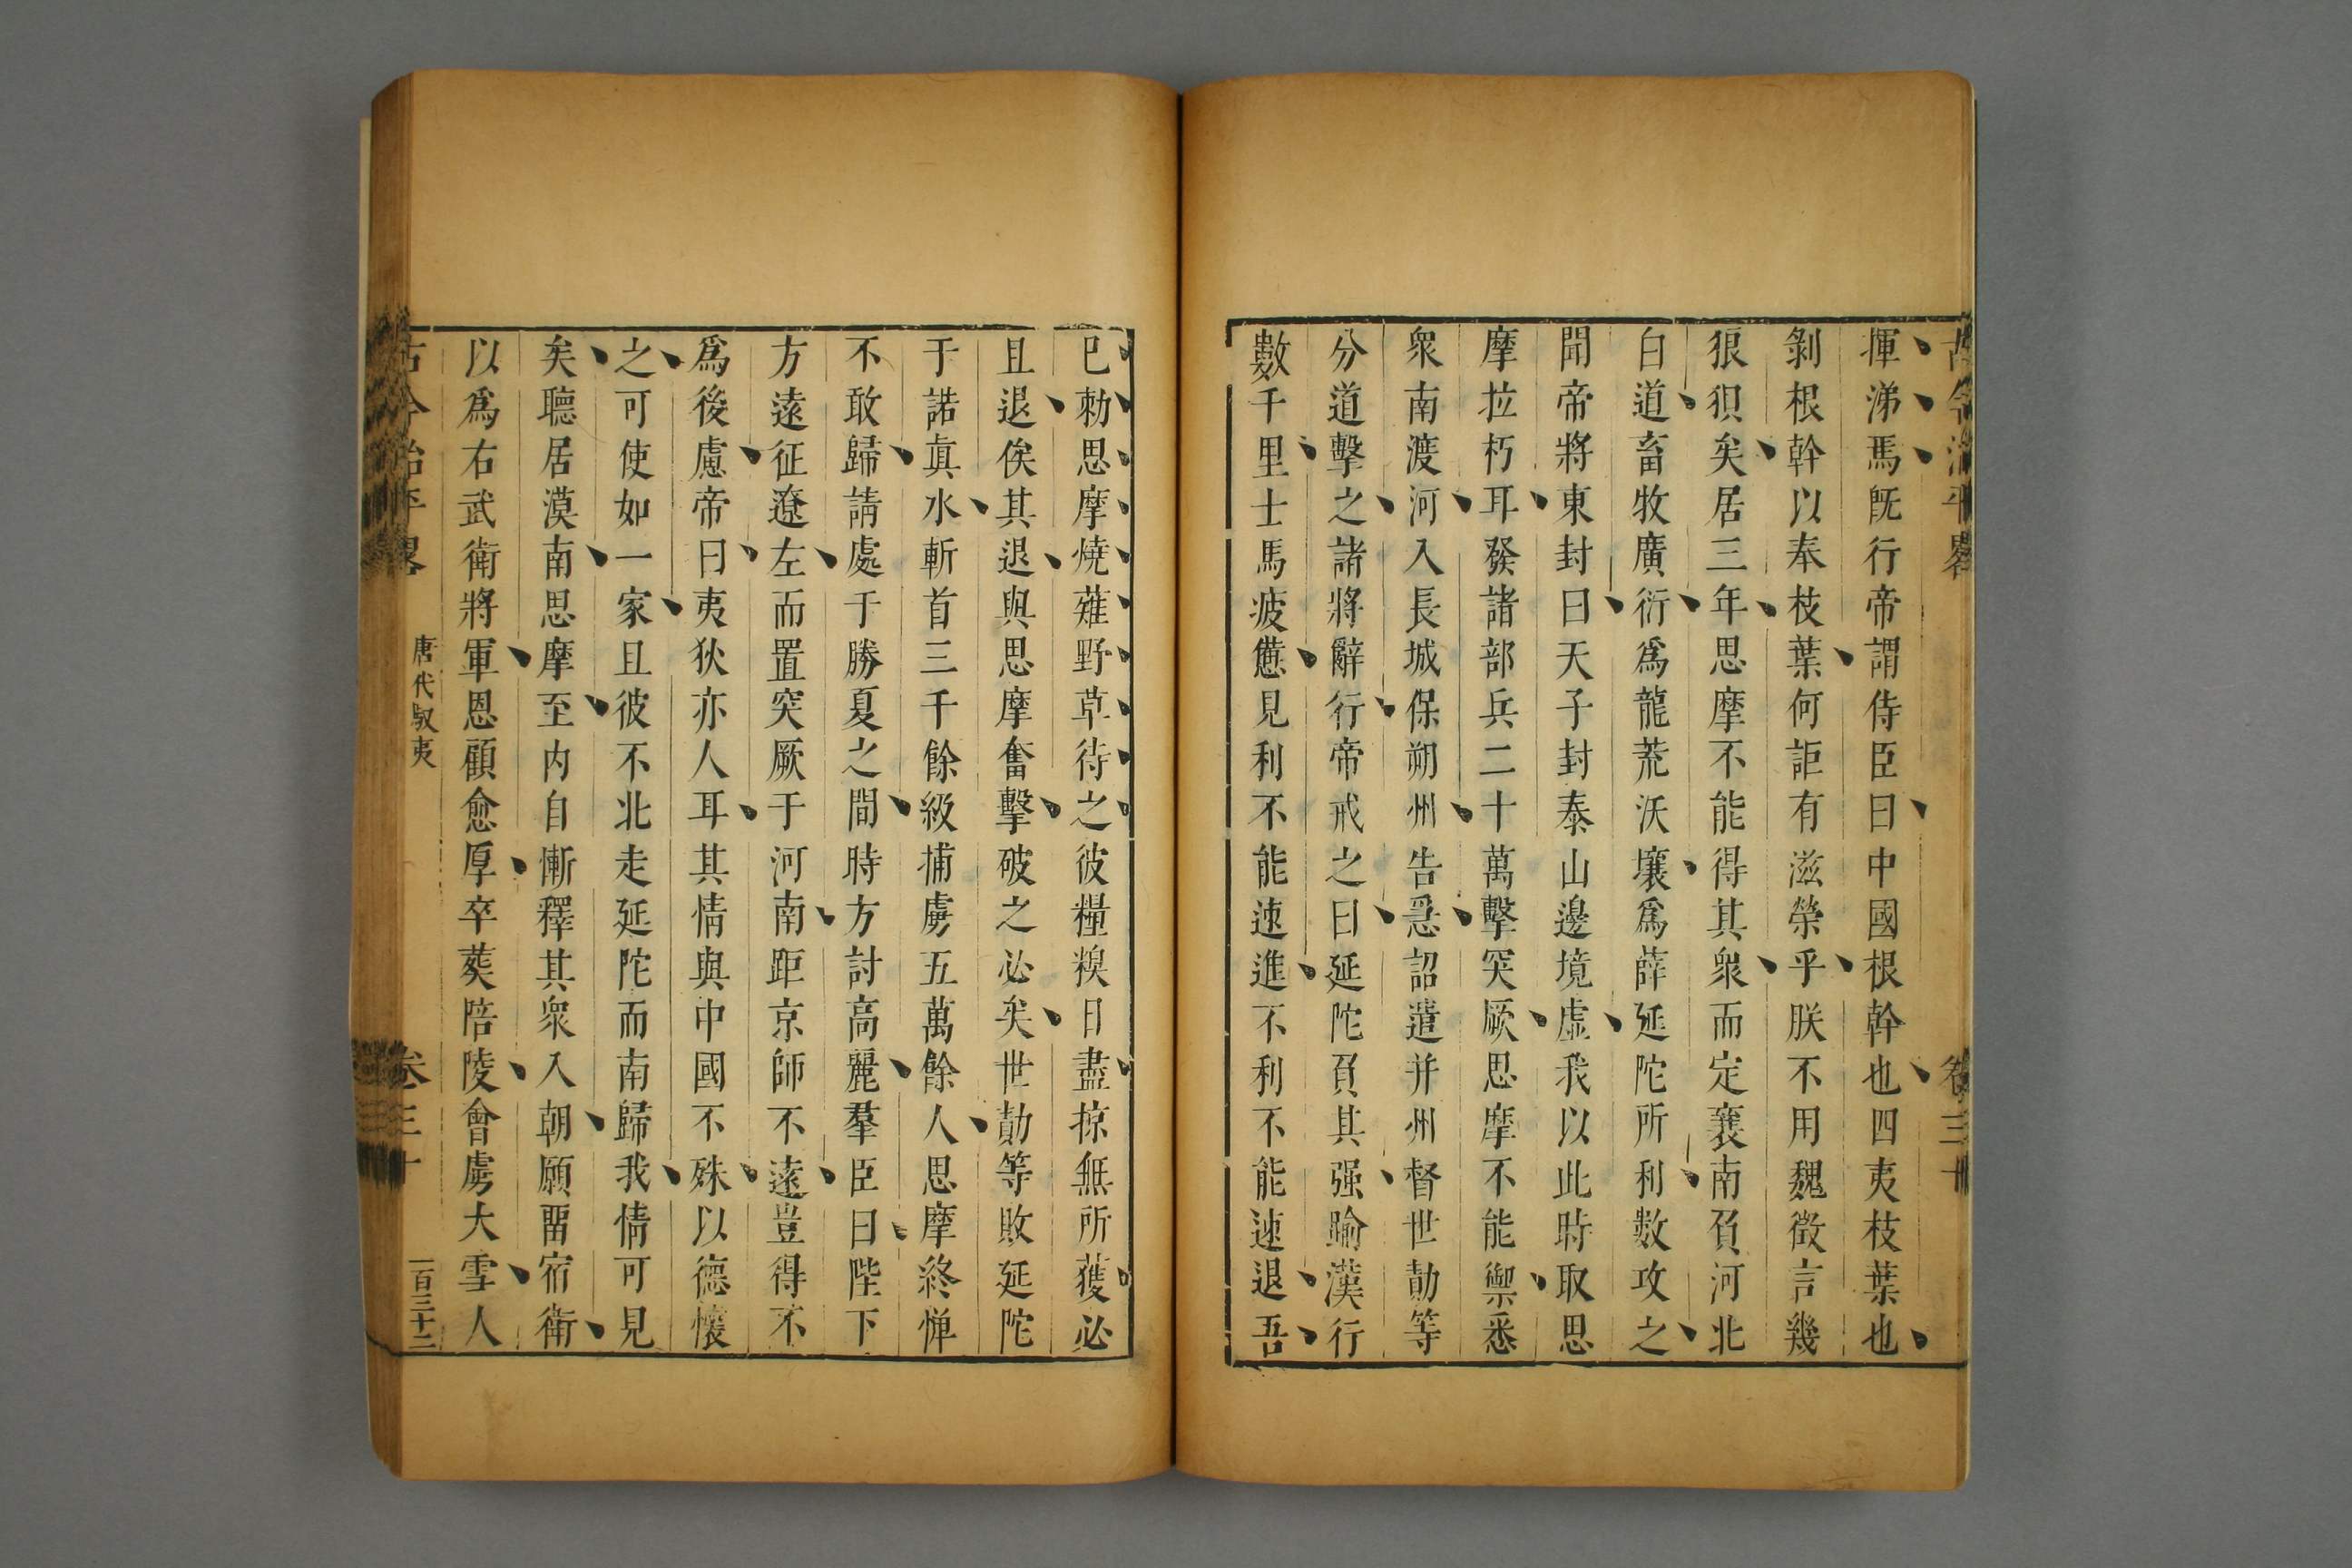 古今治平畧
卷三十
揮涕馬旣行帝謂侍臣曰中國根幹也四夷枝葉也
剝根幹以奉枝葉何詎有滋榮乎朕不用魏徵言幾
狼狽矣居三年思摩不能得其衆而定襄南負河北
白道畜牧廣衍爲龍荒沃壤爲薛延陀所利數攻之
聞帝將東封曰天子封泰山邊境虛我以此時取思
摩拉朽耳發諸部兵二十萬擊突厥思摩不能禦悉
衆南渡河入長城保朔州告急詔遣并州督世勣等
分道擊之諸將辭行帝戒之曰延陀負其强踰漠行
數千里士馬疲憊見利不能速進不利不能速退吾
已勅思摩燒薙野草待之彼糧糗日盡掠無所獲必
且退俟其退與思摩奮擊破之必矣世勣等敗延陀
于諾真水斬首三千餘級捕虜五萬餘人思摩終憚
不敢歸請處于勝夏之間時方討高麗羣臣曰陛下
方遠征遼左而置突厥于河南距京師不遠豈得不
爲後慮帝曰夷狄亦人耳其情與中國不殊以德懷
之可使如一家且彼不北走延陀而南歸我情可見
矣聽居漠南思摩至内自慚釋其衆入朝願畱宿衛
以爲右武衛將軍恩顧愈厚卒葬陪陵會虜大雪人
古今治平畧
唐代馭夷
卷三十
一百三十二